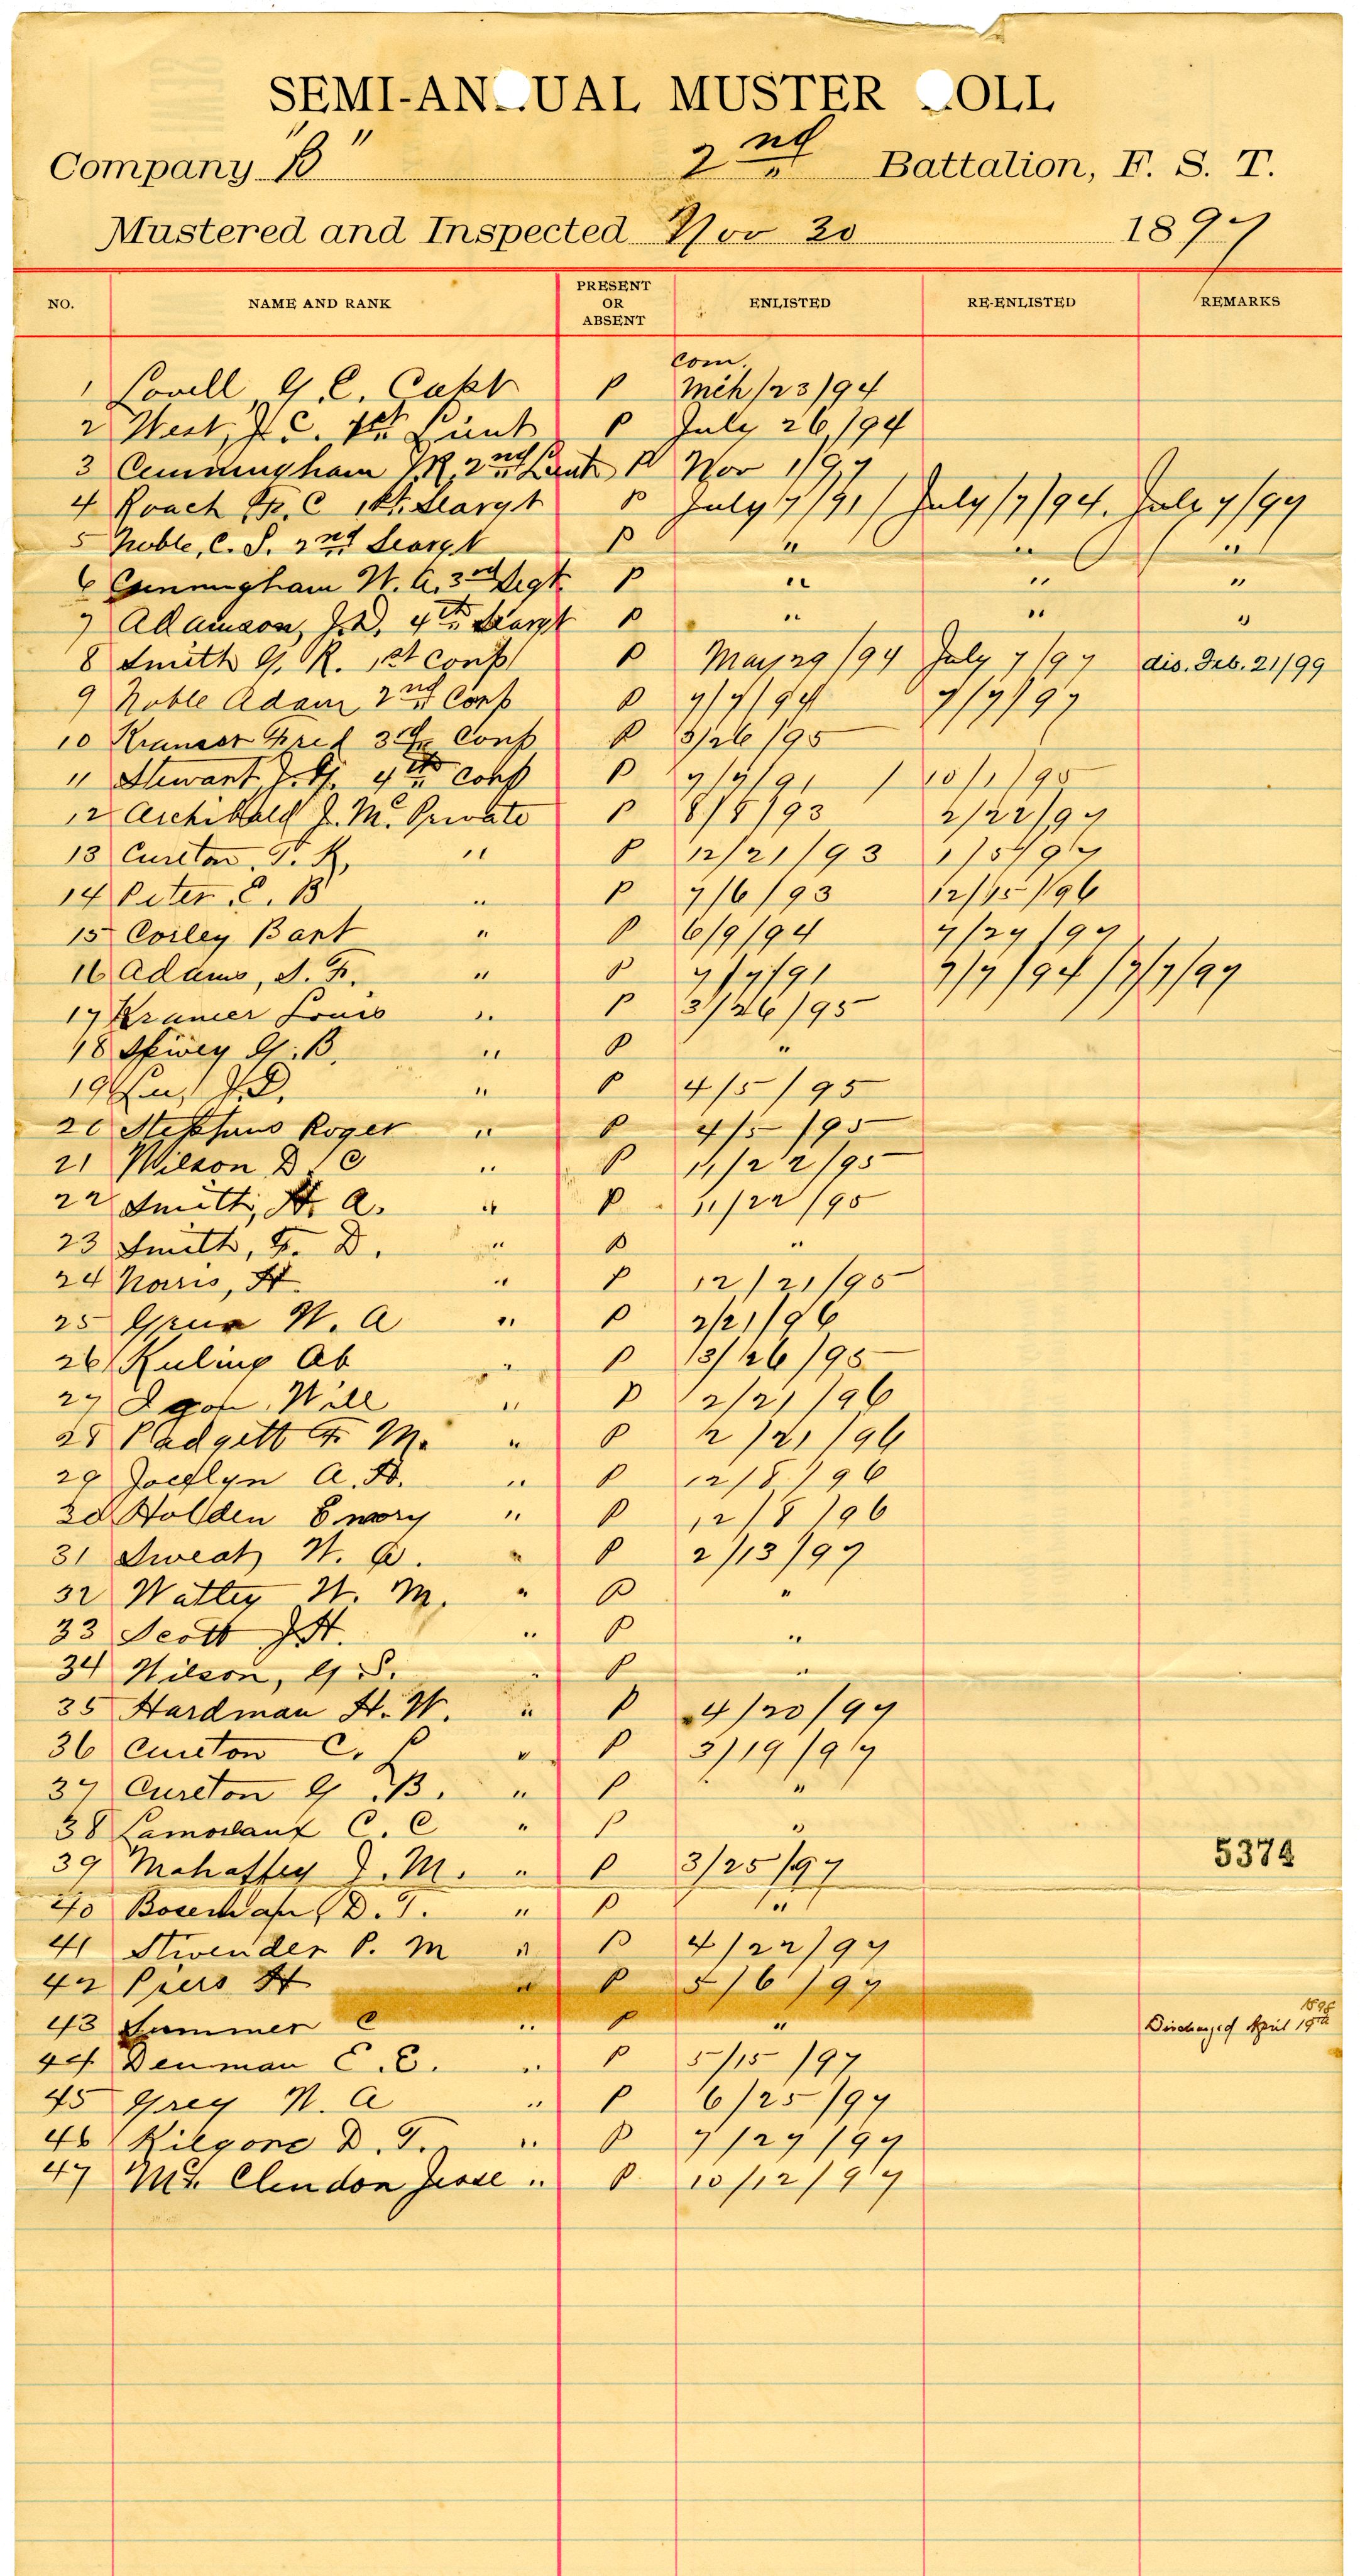 SEMI-ANNUAL MUSTER ROLL
Company "B" 2nd Battalion, F. S. T.
Mustered and Inspected Nov 30 1897
NO. NAME AND RANK PRESENT OR ABSENT ENLISTED RE-ENLISTED REMARKS
com.
1 Lovell, G. C. Capt P Mch/23/94
2 West, J. C. 1st Lieut P July 26/94
3 Cunningham J. R. 2nd Lieut P Nov 1/97
4 Roach Fr. C 1st. Seargt P July 7/91/ July/7/94. July 7/97
5 Noble, C. S. 2nd Seargt P " " "
6 Cunningham W. A. 3rd Segt. P " " "
7 Adamson, J. D. 4th Seargt P " " "
8 Smith G. R. 1st Corpl P May 29/94 July 7/97 dis. Feb. 21/99
9 Noble Adam 2nd Corp P 7/7/94 7/7/97
10 Kramer Fred 3rd Corp P 3/26/95
11 Stewart, J. G. 4th Corp P 7/7/91 / 10/1/95
12 Archibald J. M. Private P 8/8/93 2/22/97
13 Cureton, T. K. " P 12/21/93 1/5/97
14 Peter, E. B " P 7/6/93 12/15/96
15 Corley Bart " P 6/9/94 7/27/97
16 Adams, S. F. " P 7/7/91 7/7/94/7/7/97
17 Kramer Louis " P 3/26/95
18 Spivey G. B. " P "
19 J. D. " P 4/5/95
20 Stephens Roger " P 4/5/95
21 Wilson D. C " P 11/22/95
22 Smith, H. A. " P 11/22/95
23 Smith, F. D. " P "
24 Norris, H. " P 12/21/95
25 W. A " P 2/21/96
26 Ruling Ab " P 3/26/95
27 Will " P 2/21/96
28 Padgett F. M. " P 2/21/96
29 Jocelyn A. B. " P 12/8/96
30 Holden Emory " P 12/8/96
31 Sweat W. A. " P 2/13/97
32 Watley W. M. " P "
33 Scott J. H. " P "
34 Wilson, G. S. " P "
35 Hardman H. W. " P 4/20/97
36 Cureton C. L " P 3/19/97
37 Cureton G. B. " P "
38 Lamoreaux C. C " P "
39 Mahaffey J. M. " P 3/25/97
5374
40 Boseman D. T. " P "
41 Stivender P. M " P 4/22/97
42 Piers H " P 5/6/97
43 Summer C " P " Discharged April 19th 1898
44 Denman E. E. " P 5/15/97
45 Grey W. A " P 6/25/97
46 Kilgore D. T. " P 7/27/97
47 Mc. Clendon Jesse " P 10/12/97